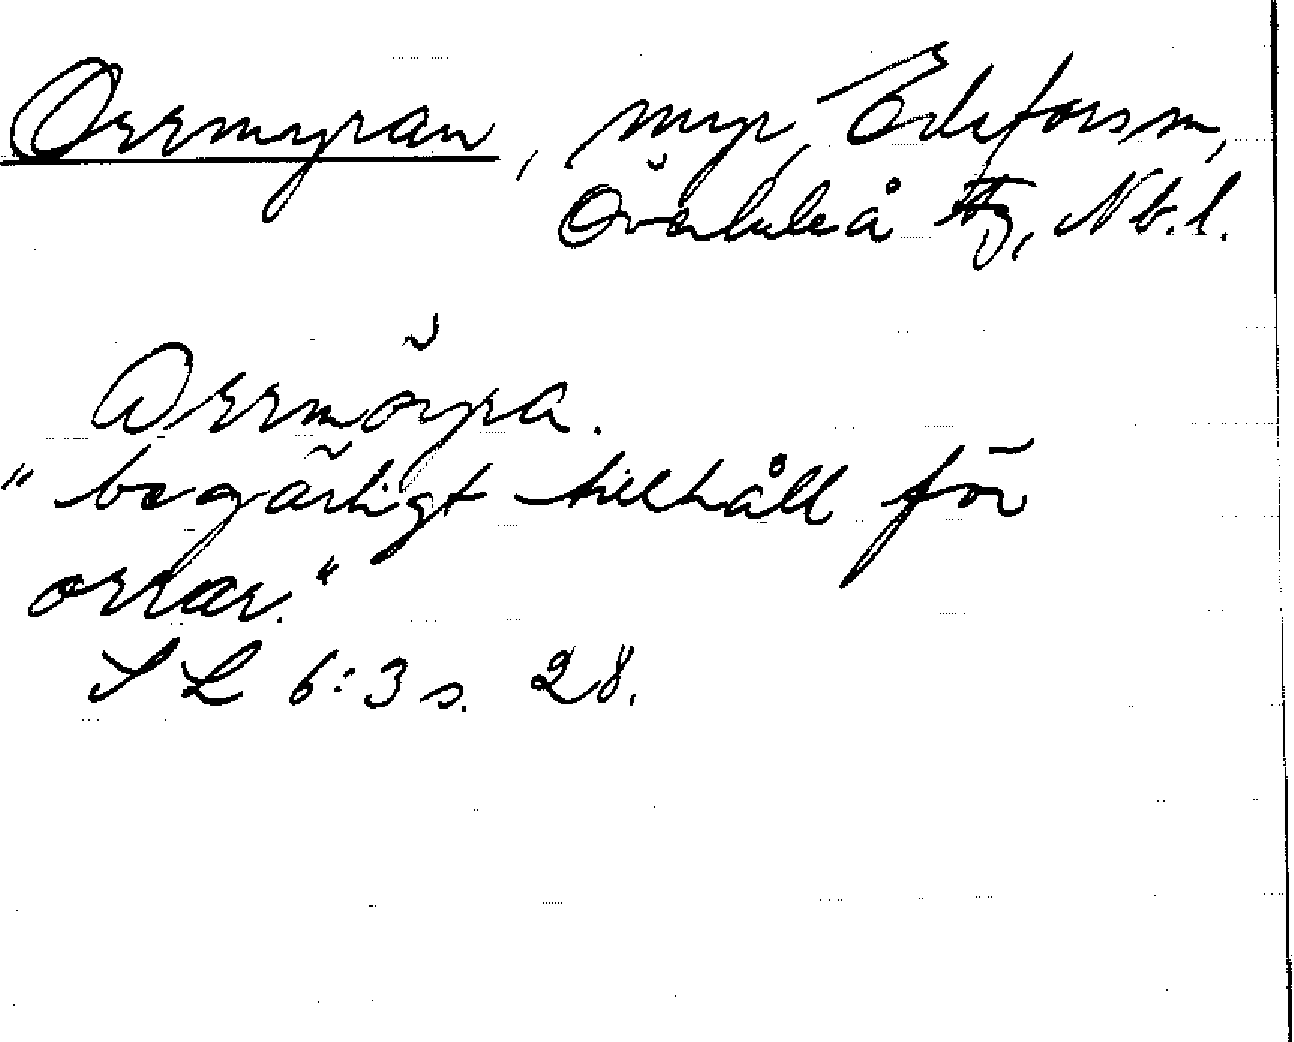 Orrmyran, myr, Edeforsm,
Överluleå tg, Nb.l.
Orrmöyra.
"begärligt tillhåll för
orrar."
SL 6:3 s. 28.